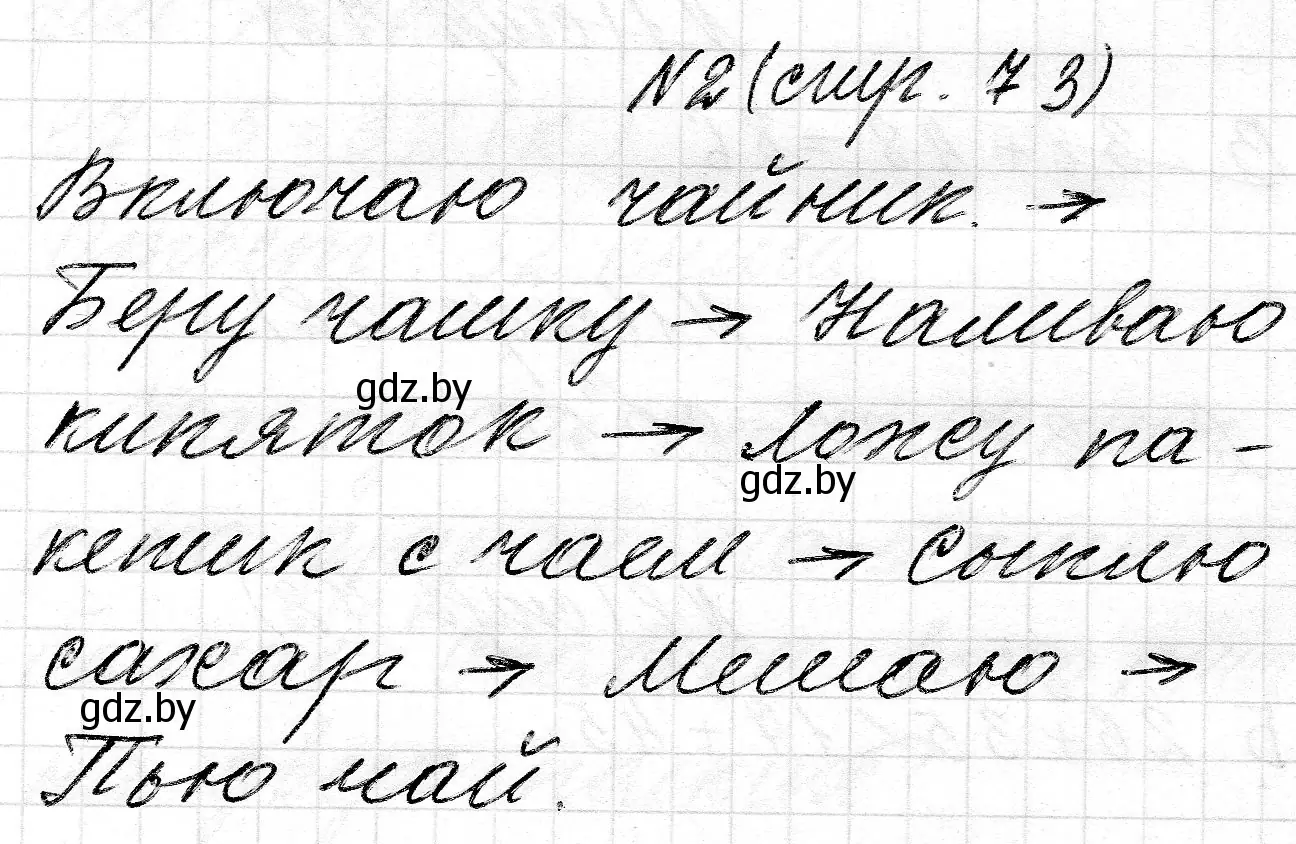 №2 (стр. 73)
Включаю чайник. →
Беру чашку → Наливаю
gdz.by
кипяток → Ложу па-
gdz.by
кетик с чаем → Сыплю
сахар → Мешаю →
gdz.by
Пью чай.